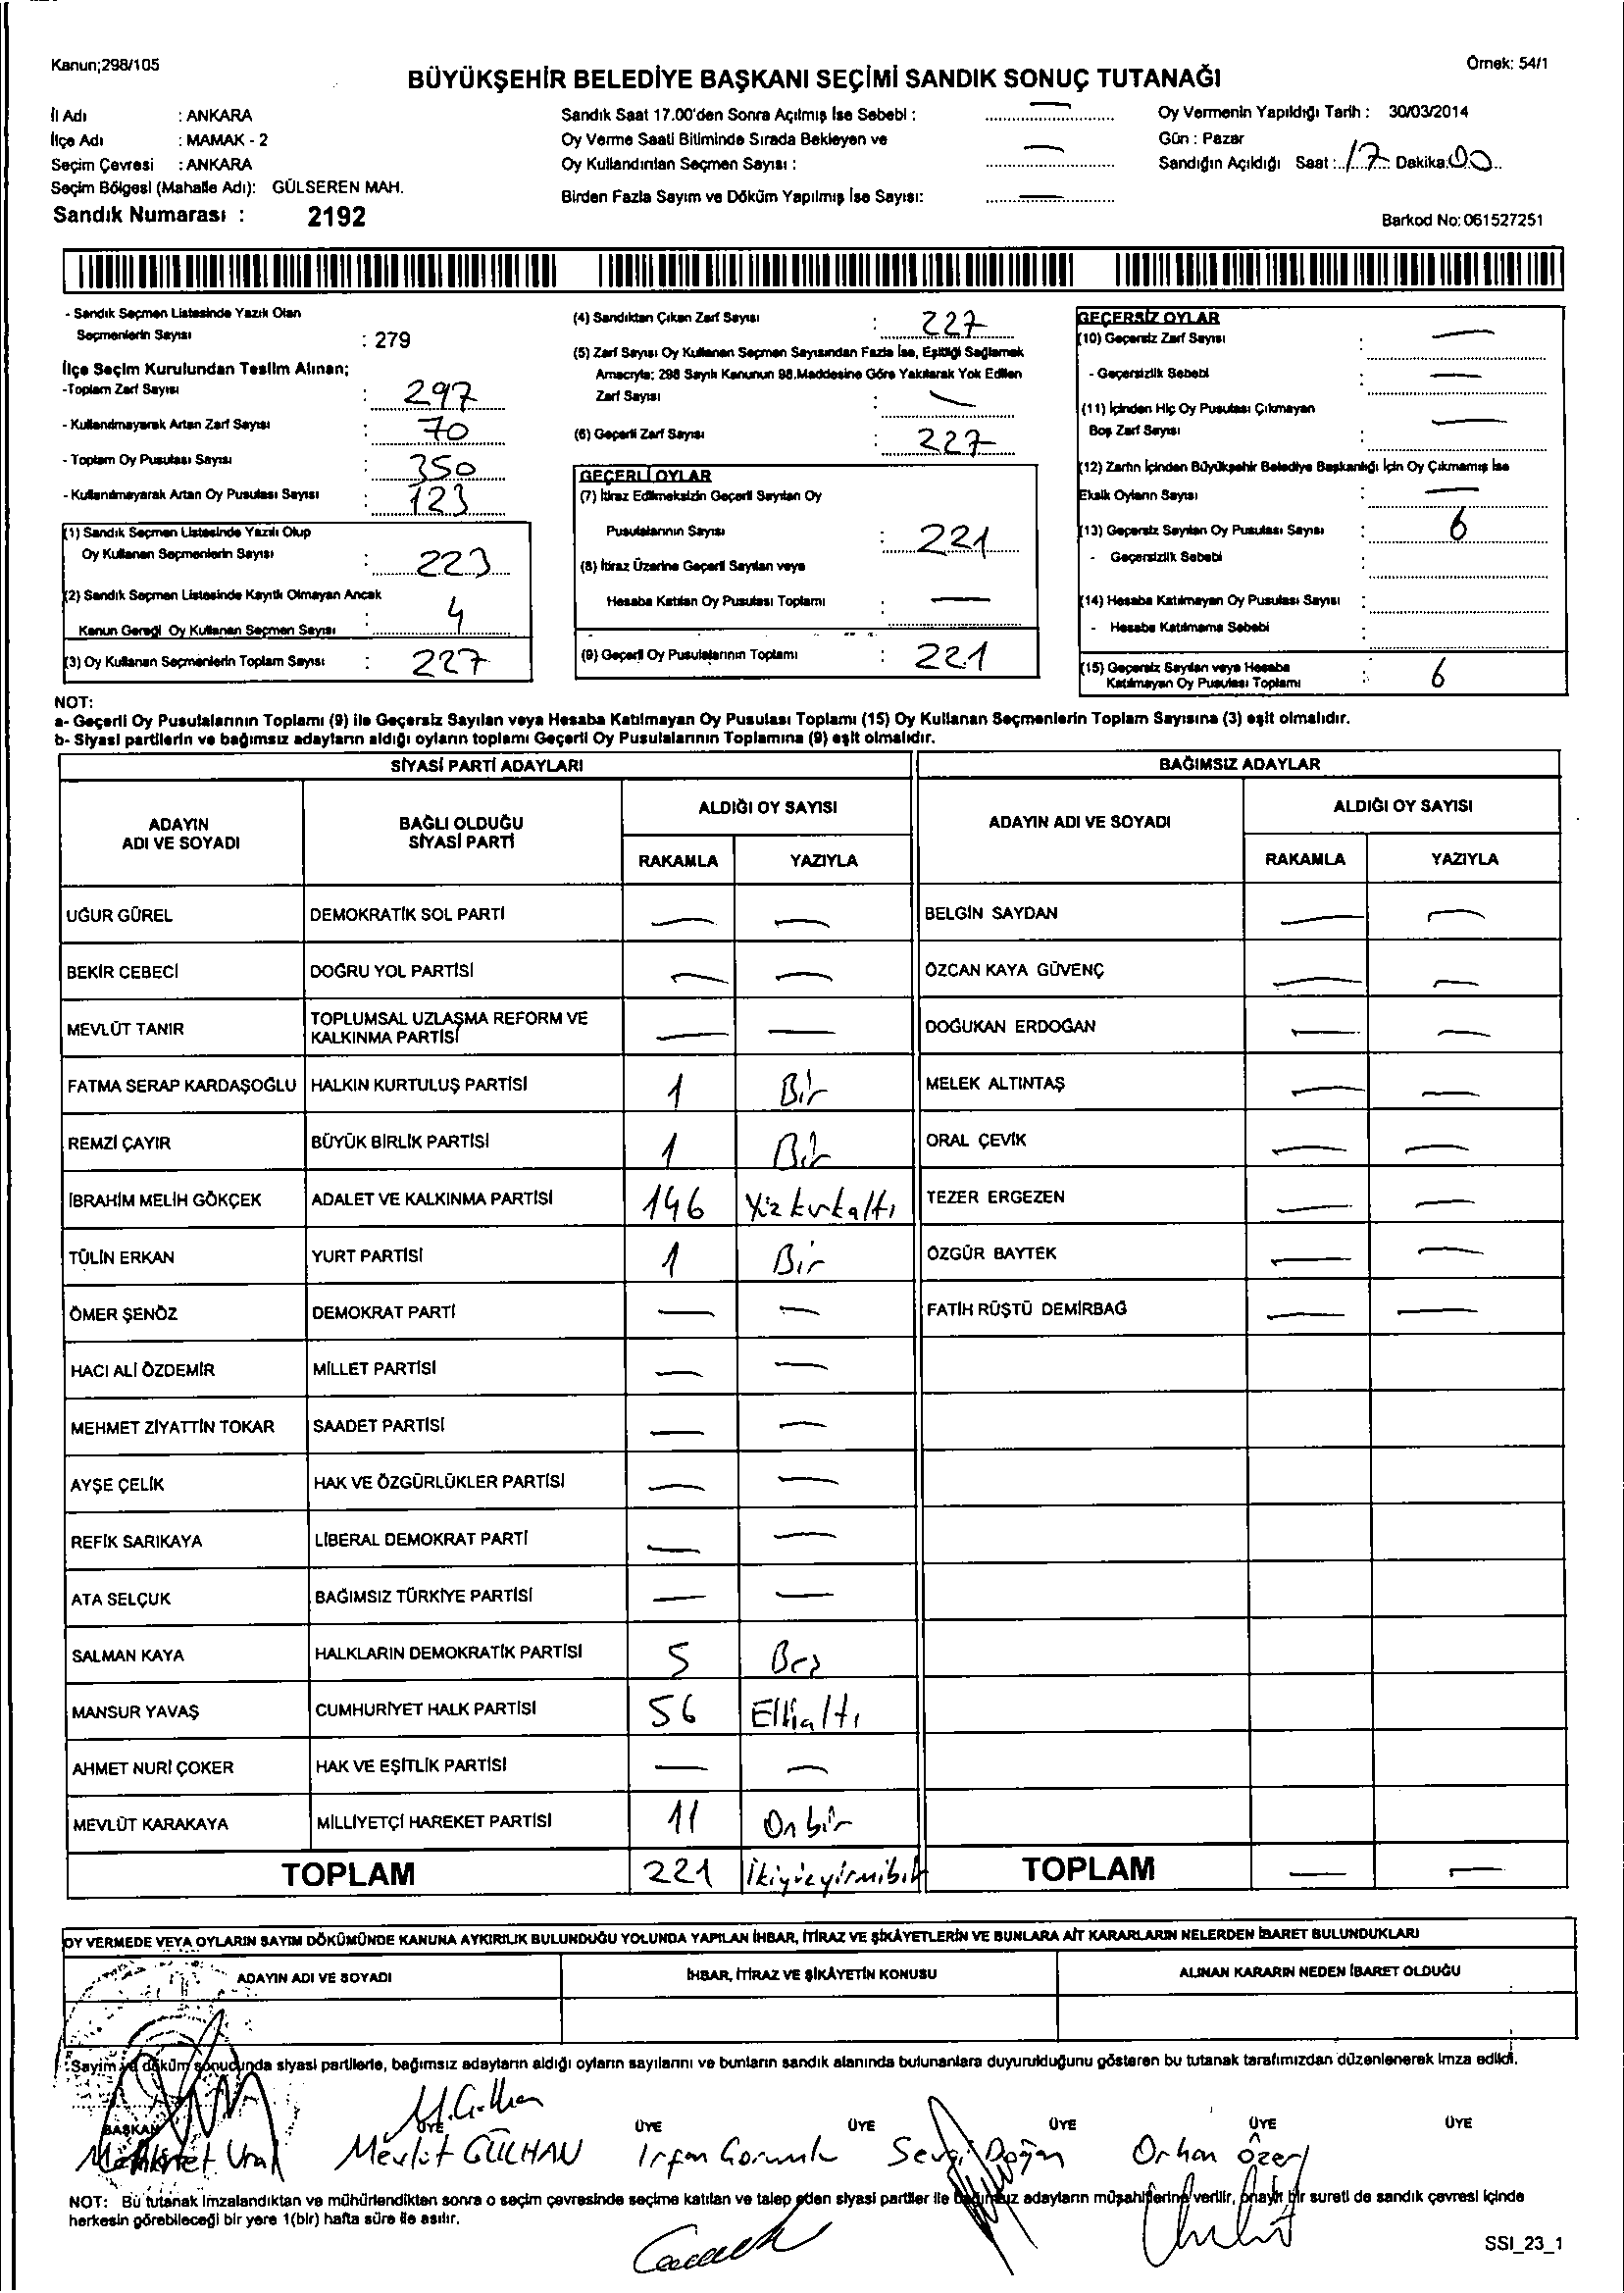 Kanun;298/105
Örnek: 54/1
BÜYÜKŞEHİR BELEDİYE BAŞKANI SEÇİMİ SANDIK SONUÇ TUTANAĞI
İl Adı : ANKARA
İlçe Adı : MAMAK - 2
Seçim Çevresi : ANKARA
Seçim Bölgesi (Mahalle Adı): GÜLSEREN MAH.
Sandık Numarası : 2192
Sandık Saat 17.00'den Sonra Açılmış İse Sebebi : —
Oy Verme Saati Bitiminde Sırada Bekleyen ve
Oy Kullandırılan Seçmen Sayısı : —
Birden Fazla Sayım ve Döküm Yapılmış İse Sayısı: —
Oy Vermenin Yapıldığı Tarih : 30/03/2014
Gün : Pazar
Sandığın Açıldığı Saat : 17 Dakika: 00
Barkod No: 061527251
- Sandık Seçmen Listesinde Yazılı Olan
Seçmenlerin Sayısı : 279
İlçe Seçim Kurulundan Teslim Alınan;
-Toplam Zarf Sayısı : 297
- Kullanılmayarak Artan Zarf Sayısı : 70
- Toplam Oy Pusulası Sayısı : 350
- Kullanılmayarak Artan Oy Pusulası Sayısı : 123
(1) Sandık Seçmen Listesinde Yazılı Olup
Oy Kullanan Seçmenlerin Sayısı : 223
(2) Sandık Seçmen Listesinde Kayıtlı Olmayan Ancak
Kanun Gereği Oy Kullanan Seçmen Sayısı : 4
(3) Oy Kullanan Seçmenlerin Toplam Sayısı : 227
(4) Sandıktan Çıkan Zarf Sayısı : 227
(5) Zarf Sayısı Oy Kullanan Seçmen Sayısından Fazla İse, Eşitliği Sağlamak
Amacıyla; 298 Sayılı Kanunun 98.Maddesine Göre Yakılarak Yok Edilen
Zarf Sayısı : —
(6) Geçerli Zarf Sayısı : 227
GEÇERLİ OYLAR
(7) İtiraz Edilmeksizin Geçerli Sayılan Oy
Pusulalarının Sayısı : 221
(8) İtiraz Üzerine Geçerli Sayılan veya
Hesaba Katılan Oy Pusulası Toplamı : —
(9) Geçerli Oy Pusulalarının Toplamı : 221
GEÇERSİZ OYLAR
(10) Geçersiz Zarf Sayısı : —
- Geçersizlik Sebebi : —
(11) İçinden Hiç Oy Pusulası Çıkmayan
Boş Zarf Sayısı : —
(12) Zarfın İçinden Büyükşehir Belediye Başkanlığı İçin Oy Çıkmamış İse
Eksik Oyların Sayısı : —
(13) Geçersiz Sayılan Oy Pusulası Sayısı : 6
- Geçersizlik Sebebi :
(14) Hesaba Katılmayan Oy Pusulası Sayısı :
- Hesaba Katılmama Sebebi :
(15) Geçersiz Sayılan veya Hesaba
Katılmayan Oy Pusulası Toplamı : 6
NOT:
a- Geçerli Oy Pusulalarının Toplamı (9) ile Geçersiz Sayılan veya Hesaba Katılmayan Oy Pusulası Toplamı (15) Oy Kullanan Seçmenlerin Toplam Sayısına (3) eşit olmalıdır.
b- Siyasi partilerin ve bağımsız adayların aldığı oyların toplamı Geçerli Oy Pusulalarının Toplamına (9) eşit olmalıdır.
SİYASİ PARTİ ADAYLARI
BAĞIMSIZ ADAYLAR
ADAYIN
ADI VE SOYADI
BAĞLI OLDUĞU
SİYASİ PARTİ
ALDIĞI OY SAYISI
RAKAMLA YAZIYLA
ADAYIN ADI VE SOYADI
ALDIĞI OY SAYISI
RAKAMLA YAZIYLA
UĞUR GÜREL DEMOKRATİK SOL PARTİ — — BELGİN SAYDAN — —
BEKİR CEBECİ DOĞRU YOL PARTİSİ — — ÖZCAN KAYA GÜVENÇ — —
MEVLÜT TANIR TOPLUMSAL UZLAŞMA REFORM VE
KALKINMA PARTİSİ — — DOĞUKAN ERDOĞAN — —
FATMA SERAP KARDAŞOĞLU HALKIN KURTULUŞ PARTİSİ 1 Bir MELEK ALTINTAŞ — —
REMZİ ÇAYIR BÜYÜK BİRLİK PARTİSİ 1 Bir ORAL ÇEVİK — —
İBRAHİM MELİH GÖKÇEK ADALET VE KALKINMA PARTİSİ 146 Yüzkırkaltı TEZER ERGEZEN — —
TÜLİN ERKAN YURT PARTİSİ 1 Bir ÖZGÜR BAYTEK — —
ÖMER ŞENÖZ DEMOKRAT PARTİ — — FATİH RÜŞTÜ DEMİRBAĞ — —
HACI ALİ ÖZDEMİR MİLLET PARTİSİ — —
MEHMET ZİYATTİN TOKAR SAADET PARTİSİ — —
AYŞE ÇELİK HAK VE ÖZGÜRLÜKLER PARTİSİ — —
REFİK SARIKAYA LİBERAL DEMOKRAT PARTİ — —
ATA SELÇUK BAĞIMSIZ TÜRKİYE PARTİSİ — —
SALMAN KAYA HALKLARIN DEMOKRATİK PARTİSİ 5 Beş
MANSUR YAVAŞ CUMHURİYET HALK PARTİSİ 56 Ellialtı
AHMET NURİ ÇOKER HAK VE EŞİTLİK PARTİSİ — —
MEVLÜT KARAKAYA MİLLİYETÇİ HAREKET PARTİSİ 11 Onbir
TOPLAM 221 İkiyüzyirmibir TOPLAM — —
OY VERMEDE VEYA OYLARIN SAYIM DÖKÜMÜNDE KANUNA AYKIRILIK BULUNDUĞU YOLUNDA YAPILAN İHBAR, İTİRAZ VE ŞİKÂYETLERİN VE BUNLARA AİT KARARLARIN NELERDEN İBARET BULUNDUKLARI
ADAYIN ADI VE SOYADI İHBAR, İTİRAZ VE ŞİKÂYETİN KONUSU ALINAN KARARIN NEDEN İBARET OLDUĞU
Sayım ve döküm sonucunda siyasi partilerle, bağımsız adayların aldığı oyların sayılarını ve bunların sandık alanında bulunanlara duyurulduğunu gösteren bu tutanak tarafımızdan düzenlenerek imza edildi.
M.Gülhan
BAŞKAN ÜYE ÜYE ÜYE ÜYE ÜYE ÜYE
Mevlüt GÜLHAN İrfan Sevgi Doğan Orhan Özer
NOT: Bu tutanak imzalandıktan ve mühürlendikten sonra o seçim çevresinde seçime katılan ve talep eden siyasi partiler ile bağımsız adayların müşahitlerine verilir, onaylı bir sureti de sandık çevresi içinde
herkesin görebileceği bir yere 1(bir) hafta süre ile asılır.
SSI_23_1